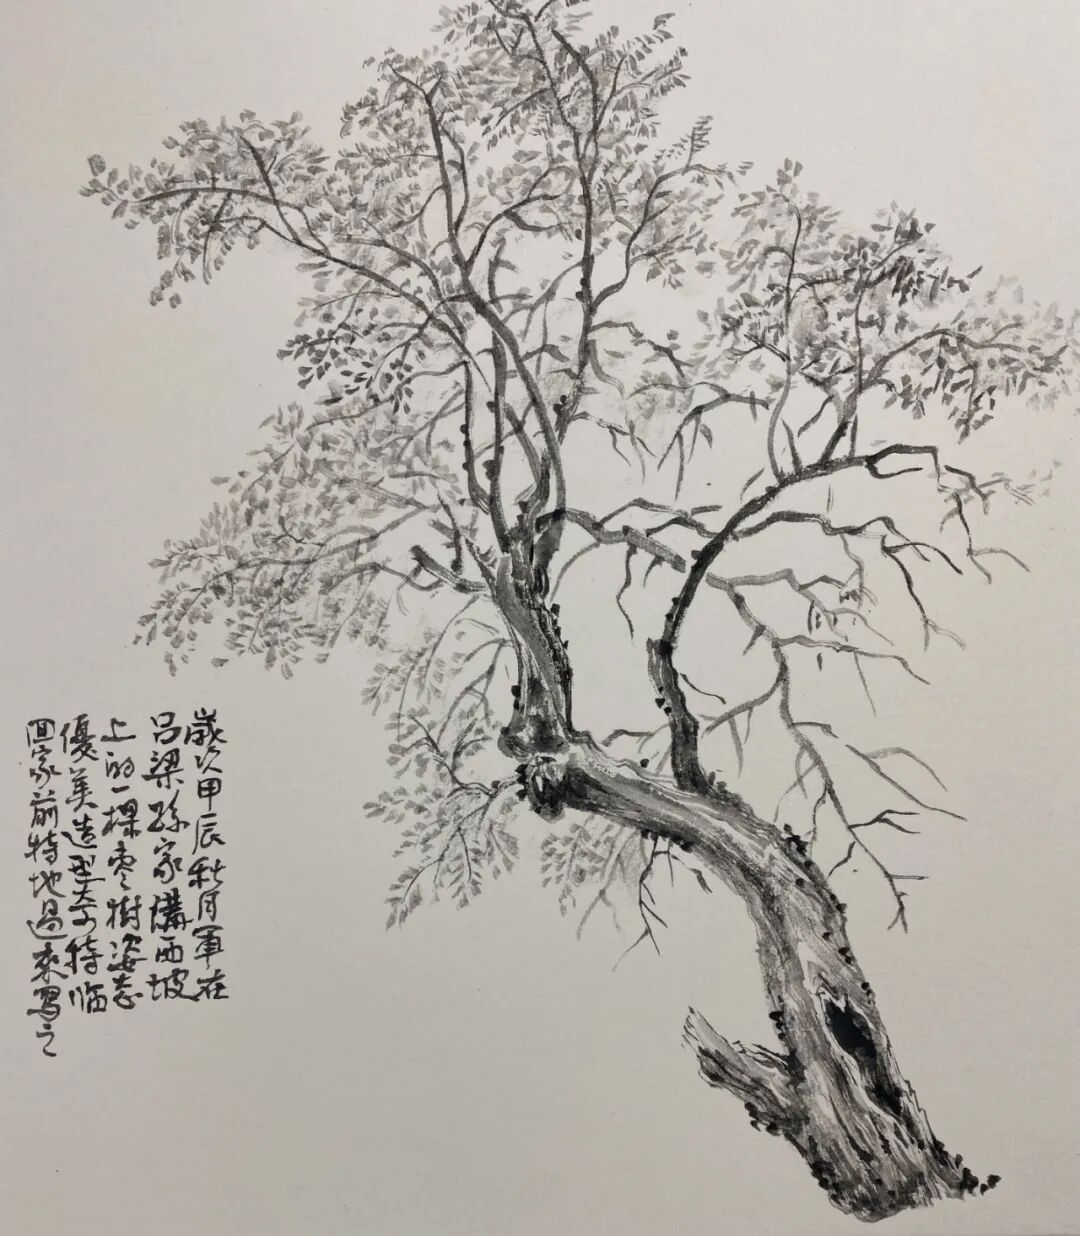 歲次甲辰秋月軍在
吕梁孫家溝西坡
上的一棵枣樹姿态
優美造型奇特临
回家前特地過來寫之